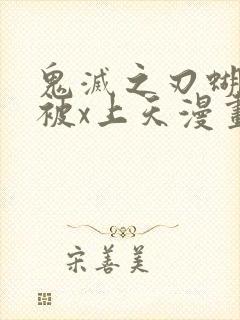 鬼滅之刃蝴
被x上天漫畫
宋善美